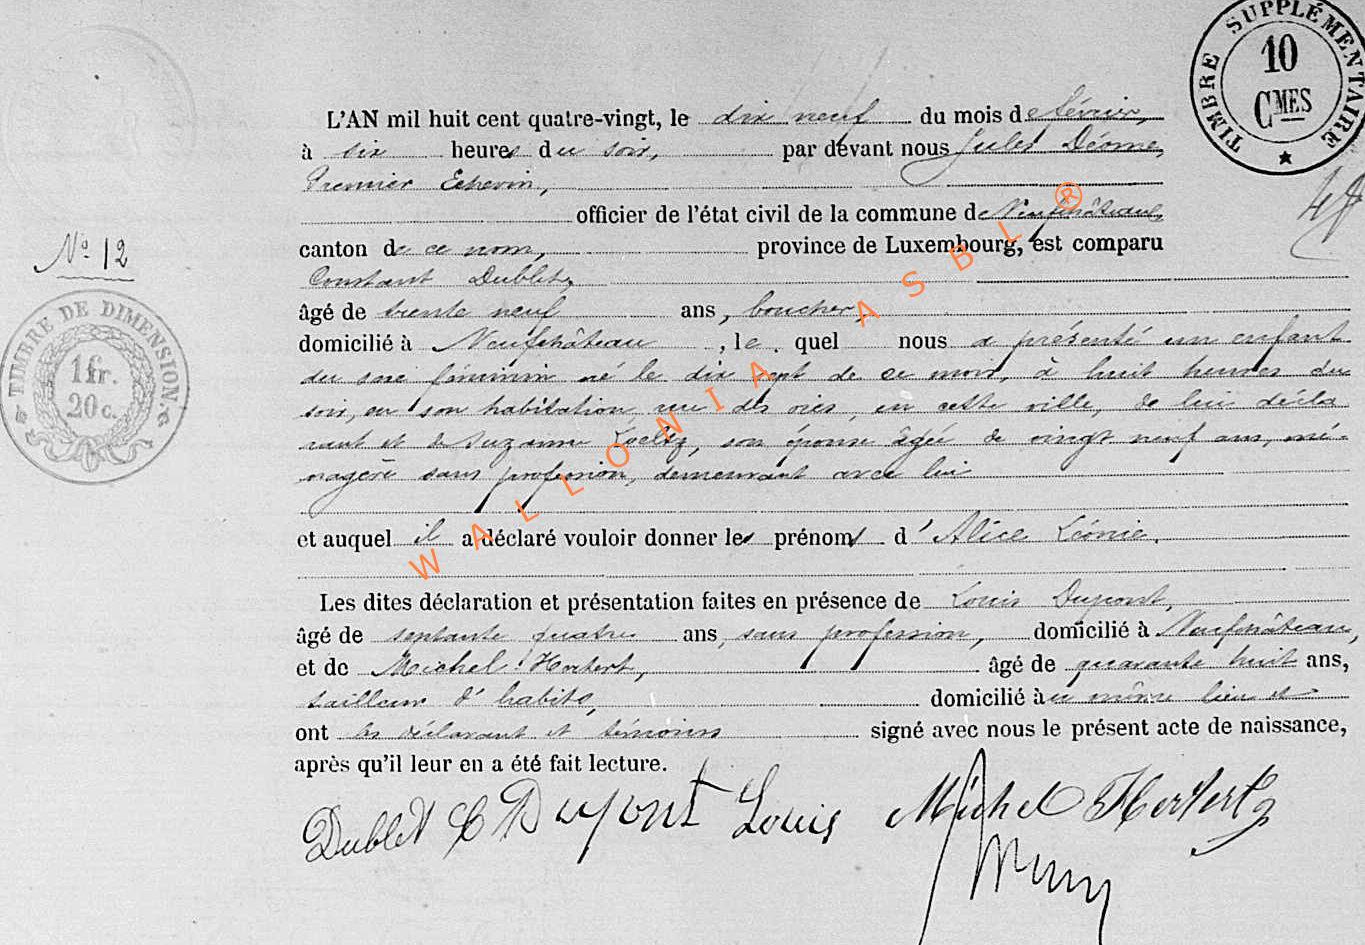 TIMBRE SUPPLÉMENTAIRE
10
CMES
L'AN mil huit cent quatre-vingt, le dix neuf du mois de février,
à six heures du soir, par devant nous Jules Déome,
Premier Echevin,
officier de l'état civil de la commune de Neufchâteau,
N° 12
canton de ce nom, province de Luxembourg, est comparu
Constant Dublet,
TIMBRE DE DIMENSION.
1fr.
20 c.
âgé de trente neuf ans, boucher,
domicilié à Neufchâteau, le quel nous a présenté un enfant
du sexe féminin né le dix sept de ce mois, à huit heures du
soir, en son habitation rue des oies, en cette ville, de lui décla
rant et de Suzanne son épouse âgée de vingt neuf ans, mé-
nagère sans profession, demeurant avec lui
et auquel il a déclaré vouloir donner les prénoms d'Alice Léonie.
Les dites déclaration et présentation faites en présence de Louis Dupont,
âgé de septante quatre ans, sans profession, domicilié à Neufchâteau,
et de Michel Herbert, âgé de quarante huit ans,
tailleur d'habits, domicilié au même lieu et
ont les déclarant et témoins signé avec nous le présent acte de naissance,
après qu'il leur en a été fait lecture.
Dublet C Dupont Louis Michel
WALLONIA ASBL ®